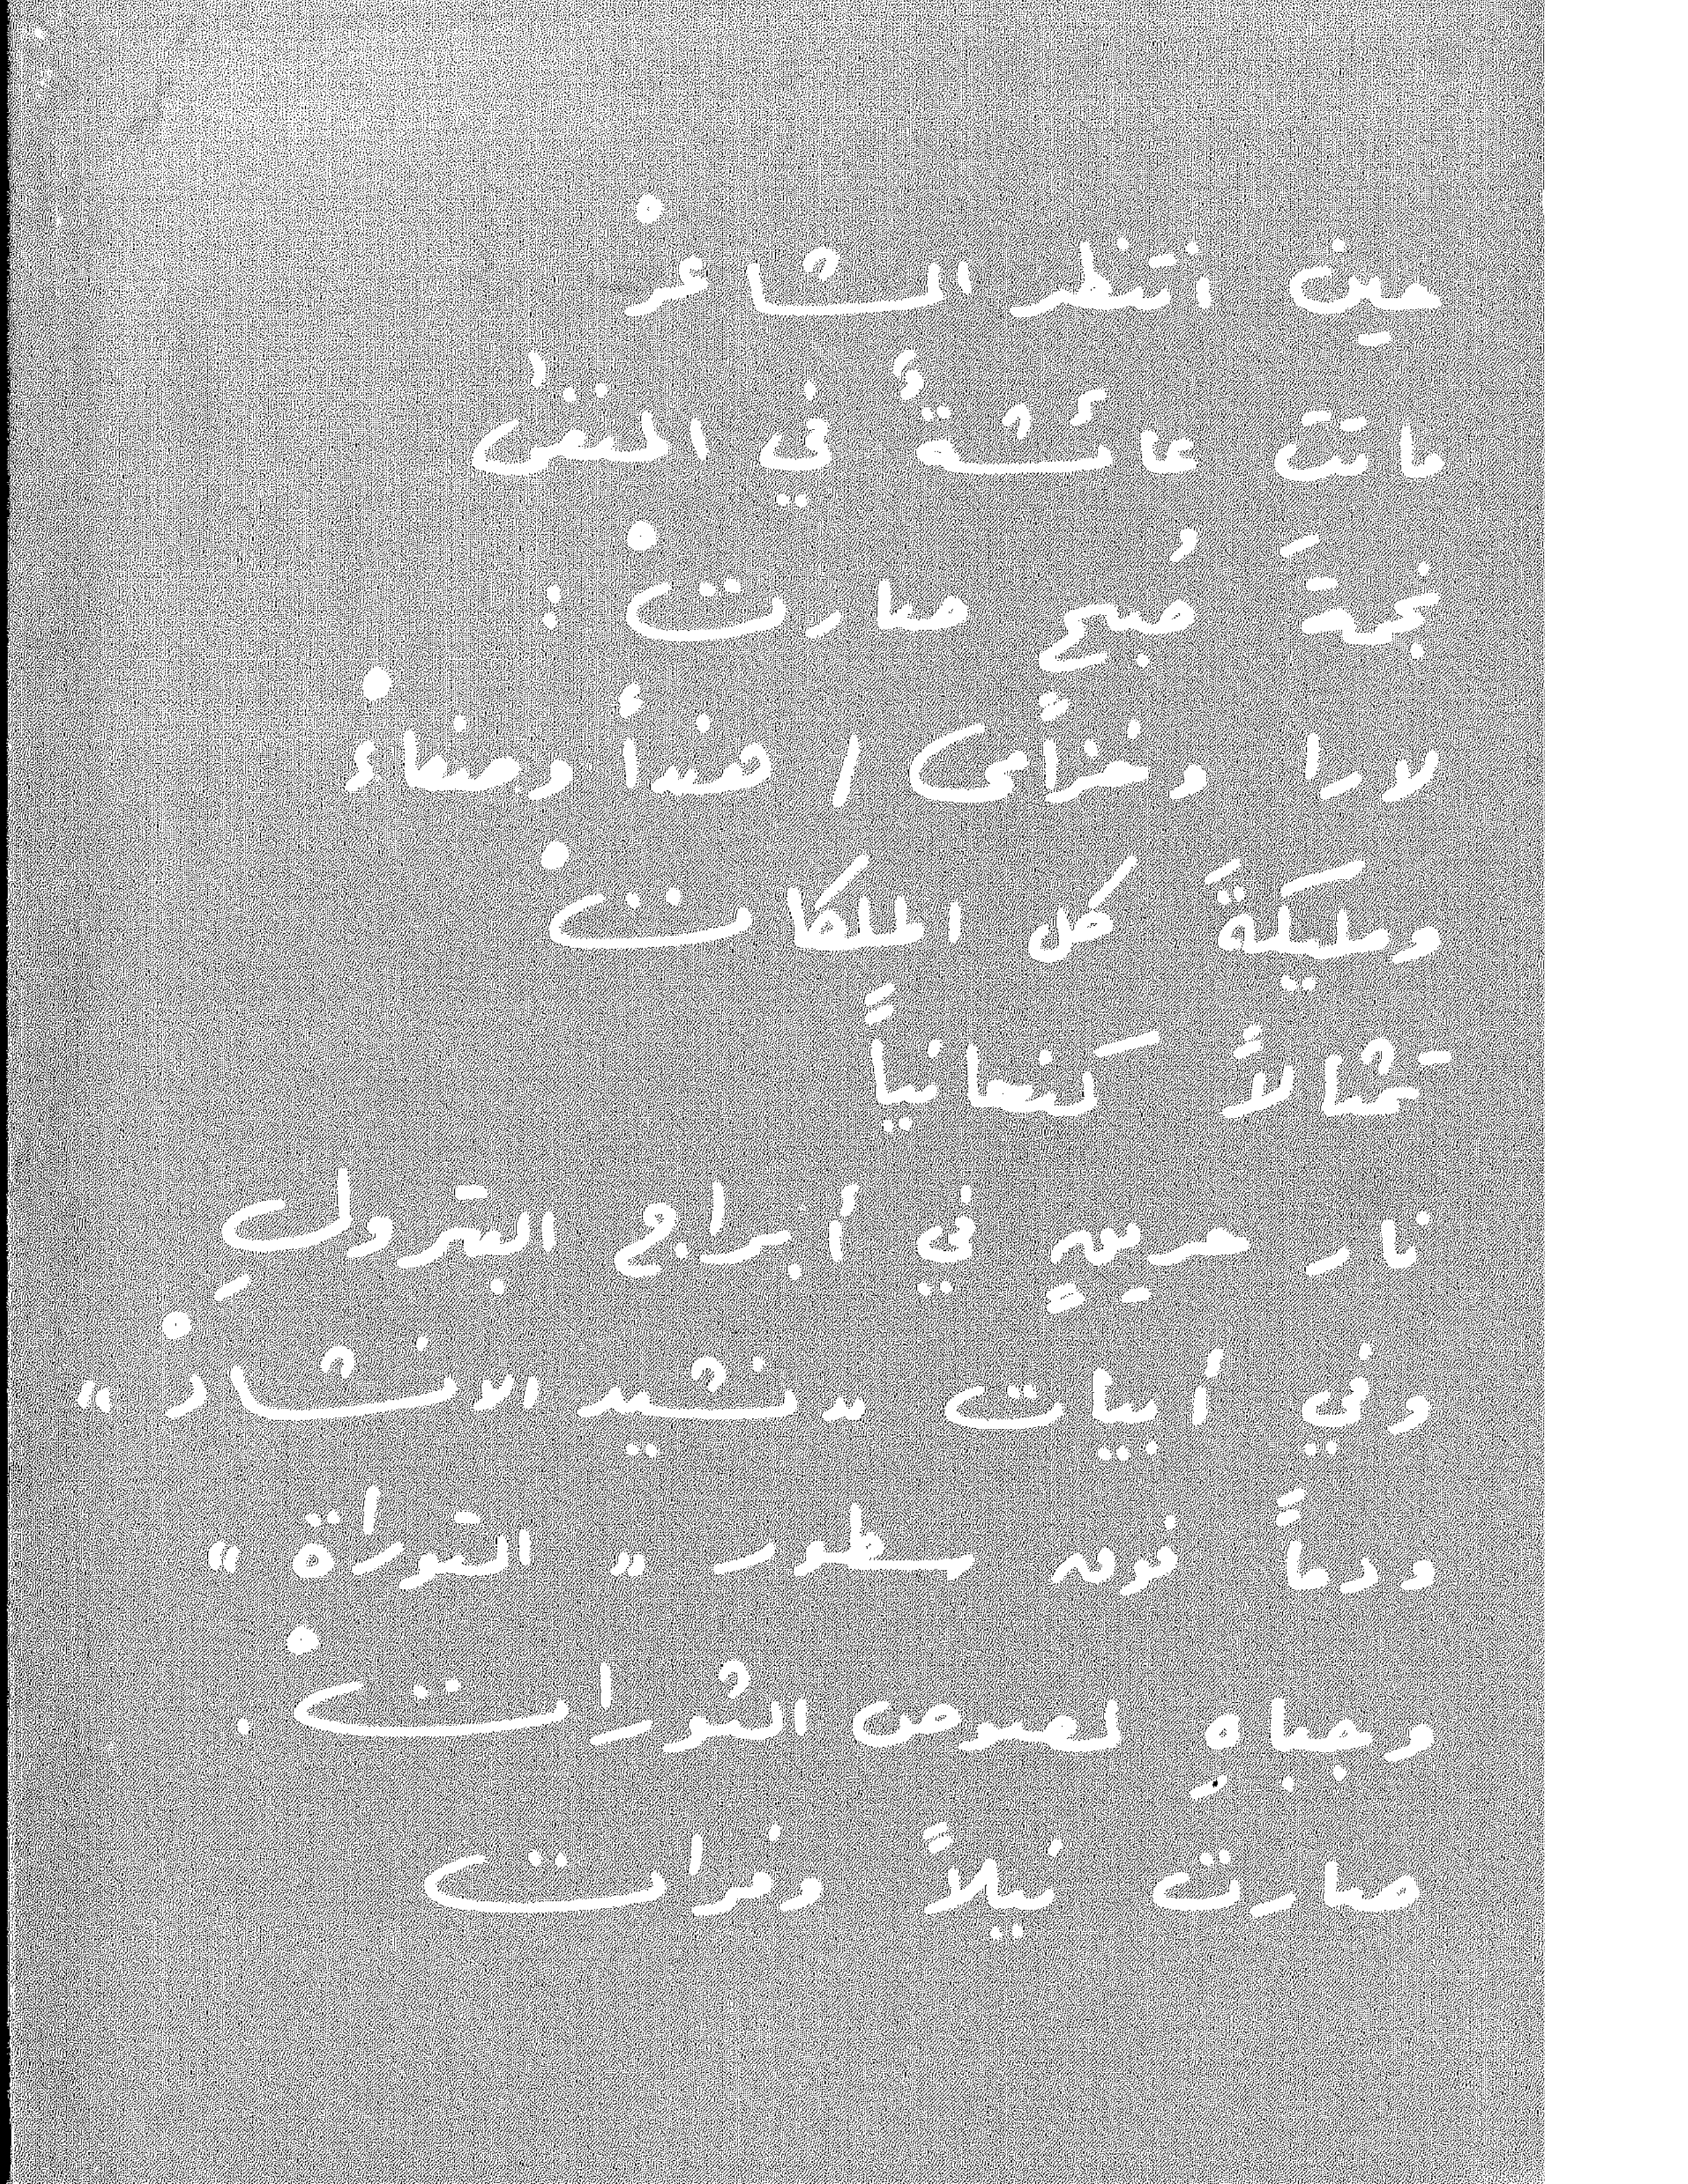 حين انتظر الشاعرْ
ماتت عائشةُ في المنفىٰ
نجمةَ صُبحٍ صارتْ :
لارا وخزاًمى / هنداً وصفاءْ
ومليكةً كل الملكاتْ
تمثالاً كنعانياً
نار حريقٍ في أبراج البترولِ
وفي أبيات « نشيد الانشادْ »
ودماً فوق سطور « التوراة »
وجباهِ لصوص الثوراتْ .
صارت نيلاً وفرات